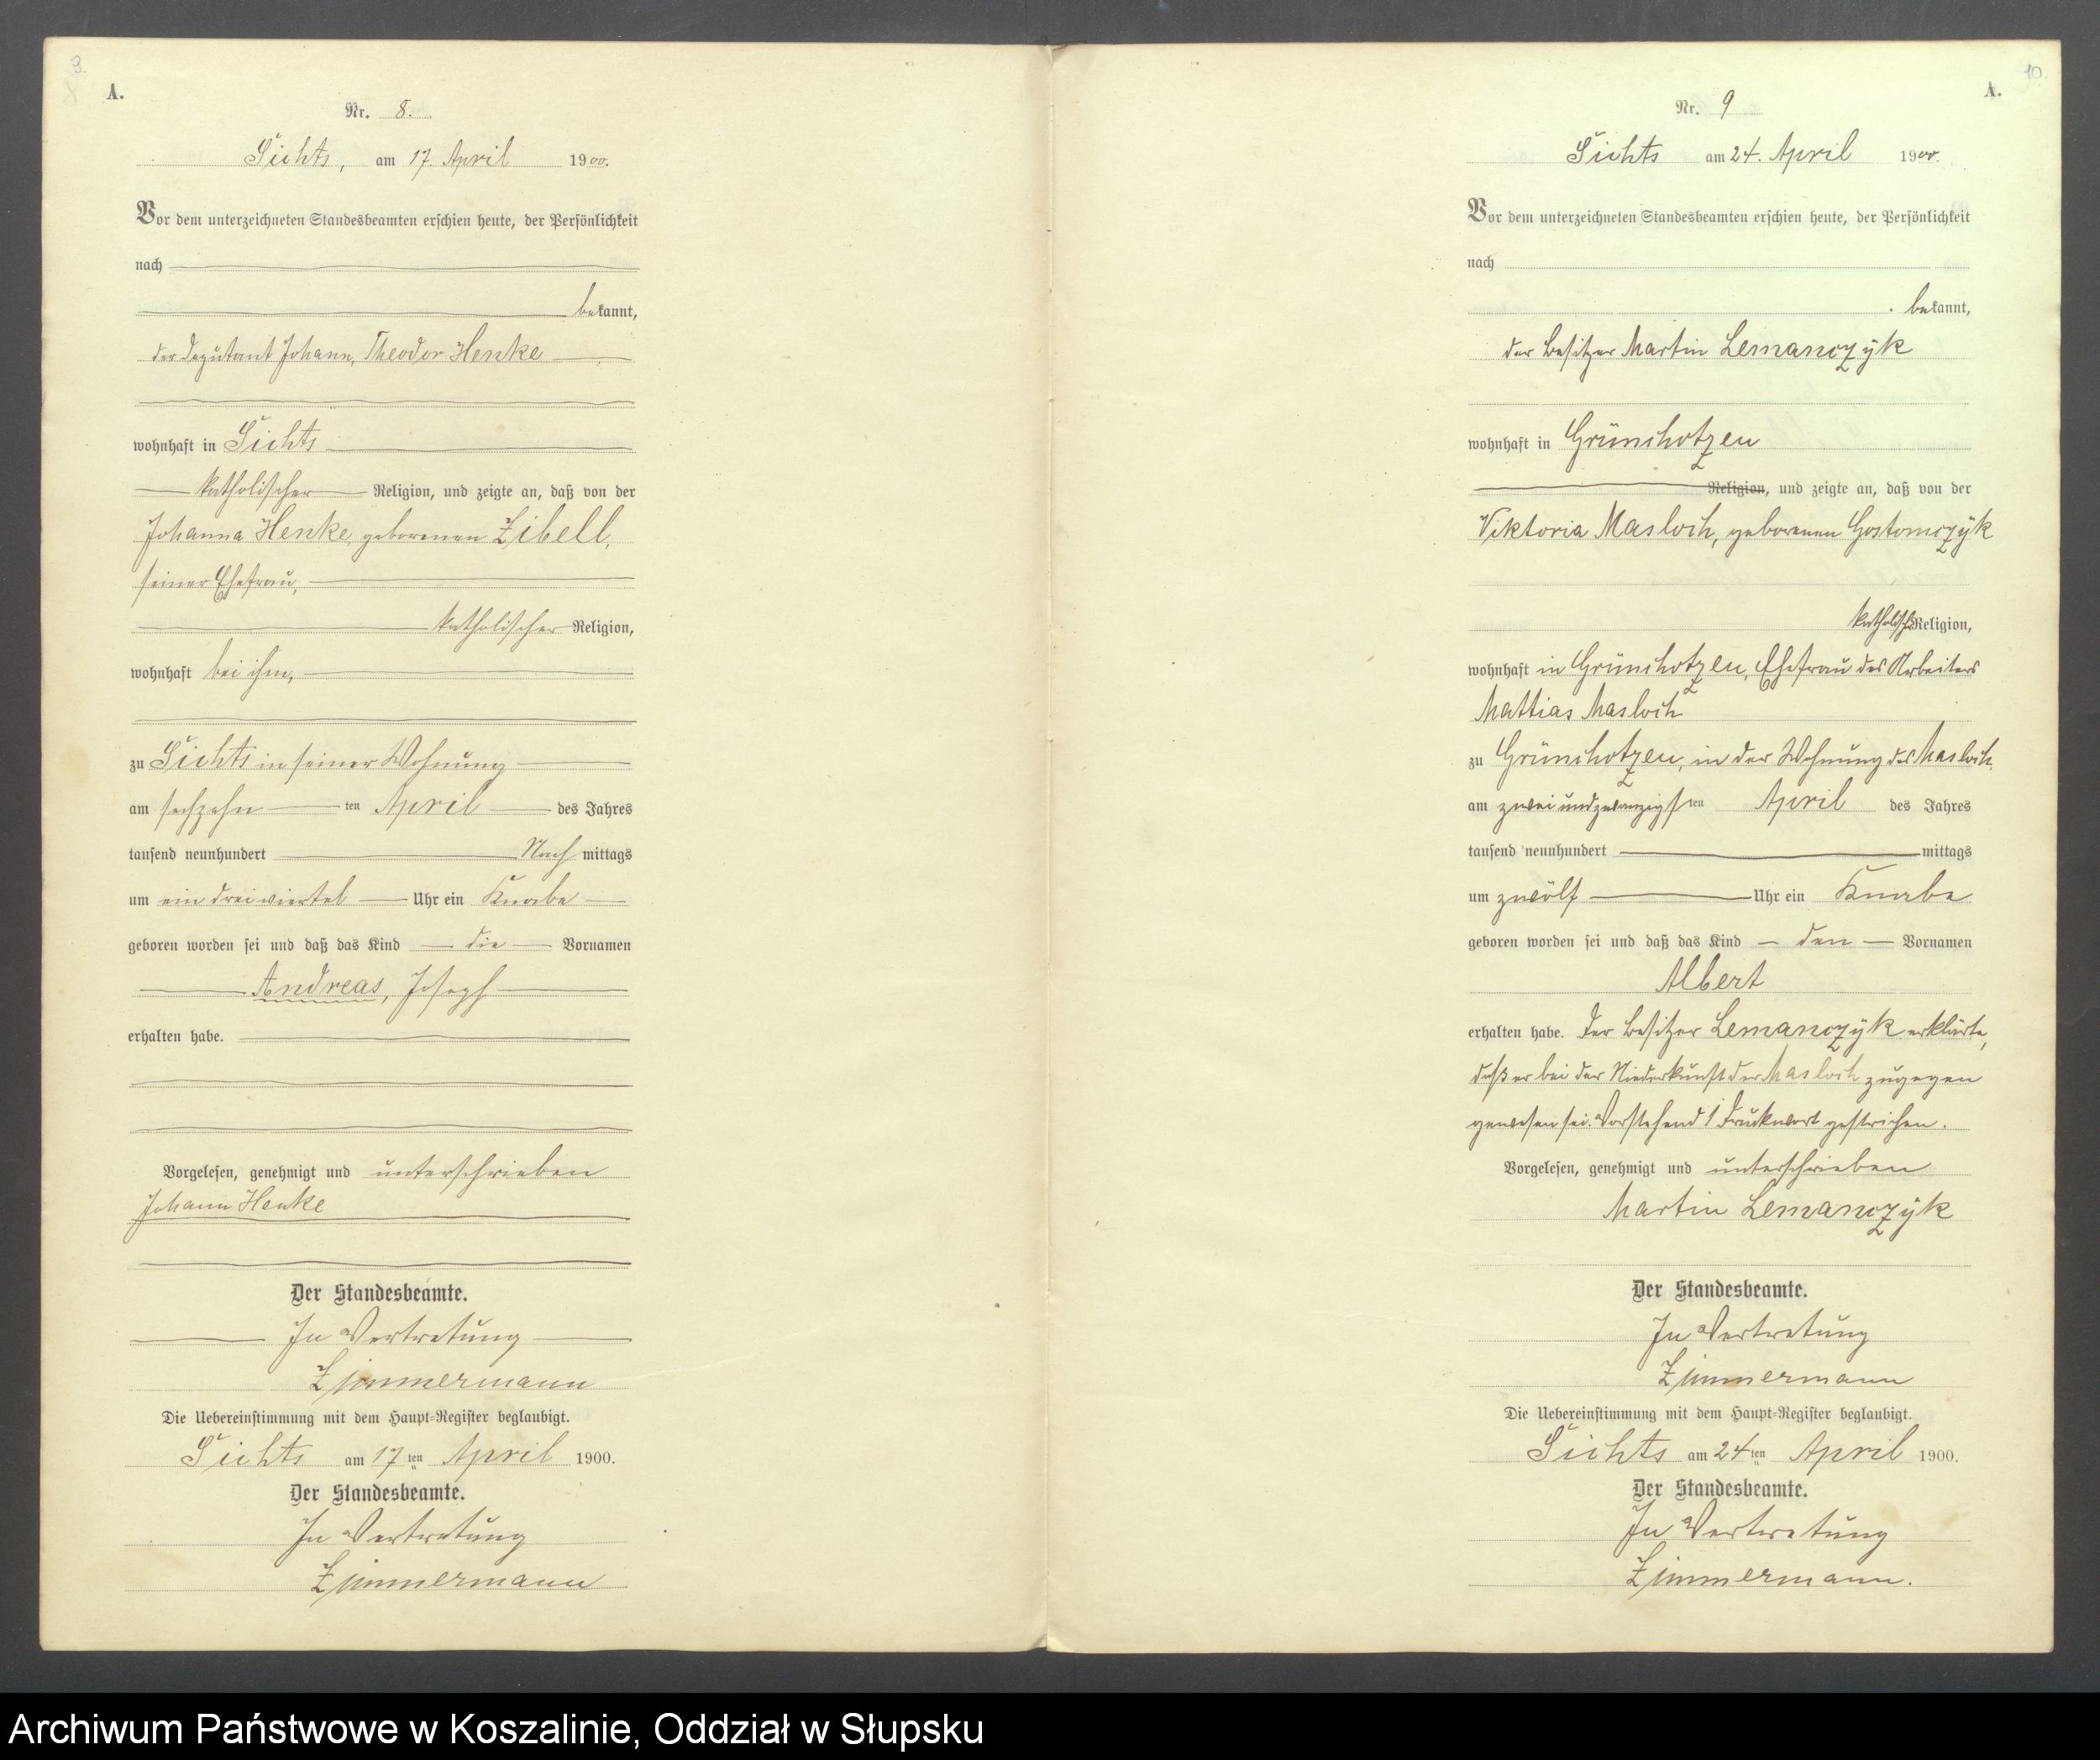 9.
8
A.
Nr. 8.
Sichts, am 17. April 1900.
Vor dem unterzeichneten Standesbeamten erschien heute, der Persönlichkeit
nach
bekannt,
der Deputant Johann, Theodor Henke
wohnhaft in Sichts
katholischer Religion, und zeigte an, daß von der
Johanna Henke, geborenen Zibell,
seiner Ehefrau,
katholischer Religion,
wohnhaft bei ihm,
zu Sichts in seiner Wohnung
am sechzehn ten April des Jahres
tausend neunhundert Nach mittags
um ein dreiviertel Uhr ein Knabe
geboren worden sei und daß das Kind die Vornamen
Andreas, Joseph
erhalten habe.
Vorgelesen, genehmigt und unterschrieben
Johann Henke
Der Standesbeamte.
In Vertretung
Zimmermann
Die Uebereinstimmung mit dem Haupt-Register beglaubigt.
Sichts am 17 ten April 1900.
Der Standesbeamte.
In Vertretung
Zimmermann
10.
A.
Nr. 9
Sichts am 24. April 1900.
Vor dem unterzeichneten Standesbeamten erschien heute, der Persönlichkeit
nach
bekannt,
der Besitzer Martin Lemanczÿk
wohnhaft in Grünchotzen
Religion, und zeigte an, daß von der
Viktoria Masloch, geborenen Gostomczÿk
katholisch Religion,
wohnhaft in Grünchotzen, Ehefrau des Arbeiters
Mattias Masloch
zu Grünchotzen, in der Wohnung des Masloch.
am zweiundzwanzigst ten April des Jahres
tausend neunhundert mittags
um zwölf Uhr ein Knabe
geboren worden sei und daß das Kind den Vornamen
Albert
erhalten habe. Der Besitzer Lemanczÿk erklärte,
daß er bei der Niederkunft der Masloch zugegen
gewesen sei. Vorstehend 1 Druckwort gestrichen.
Vorgelesen, genehmigt und unterschrieben
Martin Lemanczÿk
Der Standesbeamte.
In Vertretung
Zimmermann
Die Uebereinstimmung mit dem Haupt-Register beglaubigt.
Sichts am 24 ten April 1900.
Der Standesbeamte.
In Vertretung
Zimmermann.
Archiwum Państwowe w Koszalinie, Oddział w Słupsku